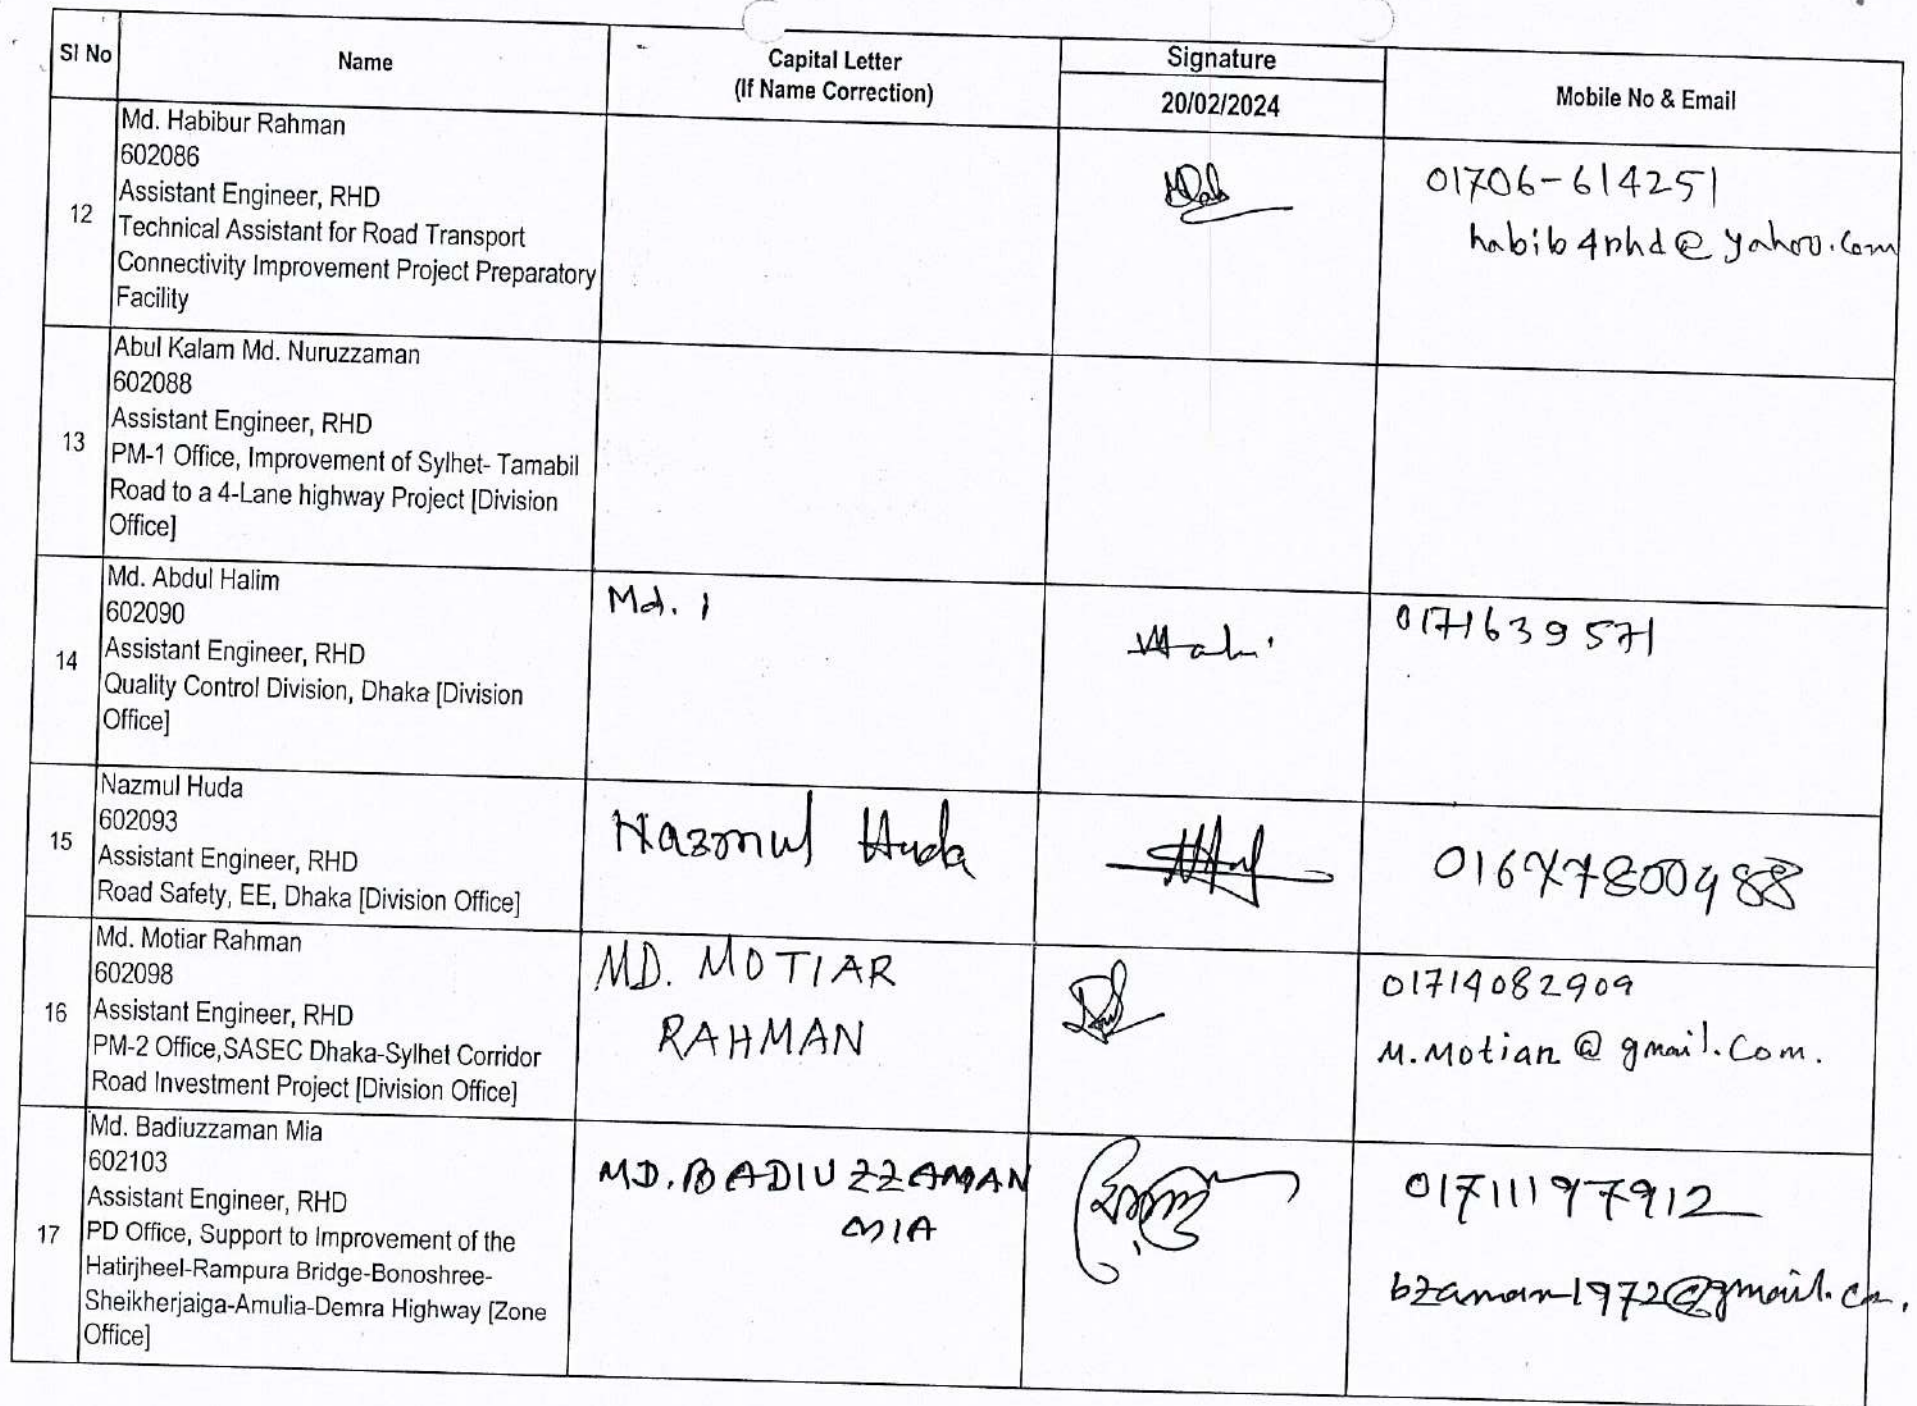 Sl No
Name
Capital Letter
(If Name Correction)
Signature
20/02/2024
Mobile No & Email
12
Md. Habibur Rahman
602086
Assistant Engineer, RHD
Technical Assistant for Road Transport
Connectivity Improvement Project Preparatory
Facility
01706-614251
habib4rhd@yahoo.com
13
Abul Kalam Md. Nuruzzaman
602088
Assistant Engineer, RHD
PM-1 Office, Improvement of Sylhet- Tamabil
Road to a 4-Lane highway Project [Division
Office]
14
Md. Abdul Halim
602090
Assistant Engineer, RHD
Quality Control Division, Dhaka [Division
Office]
Md.
0171639571
15
Nazmul Huda
602093
Assistant Engineer, RHD
Road Safety, EE, Dhaka [Division Office]
Nazmul Huda
01677800988
16
Md. Motiar Rahman
602098
Assistant Engineer, RHD
PM-2 Office,SASEC Dhaka-Sylhet Corridor
Road Investment Project [Division Office]
MD. MOTIAR
RAHMAN
01714082909
M.Motiar@gmail.Com.
17
Md. Badiuzzaman Mia
602103
Assistant Engineer, RHD
PD Office, Support to Improvement of the
Hatirjheel-Rampura Bridge-Bonoshree-
Sheikherjaiga-Amulia-Demra Highway [Zone
Office]
MD. BADIUZZAMAN
MIA
01711197912